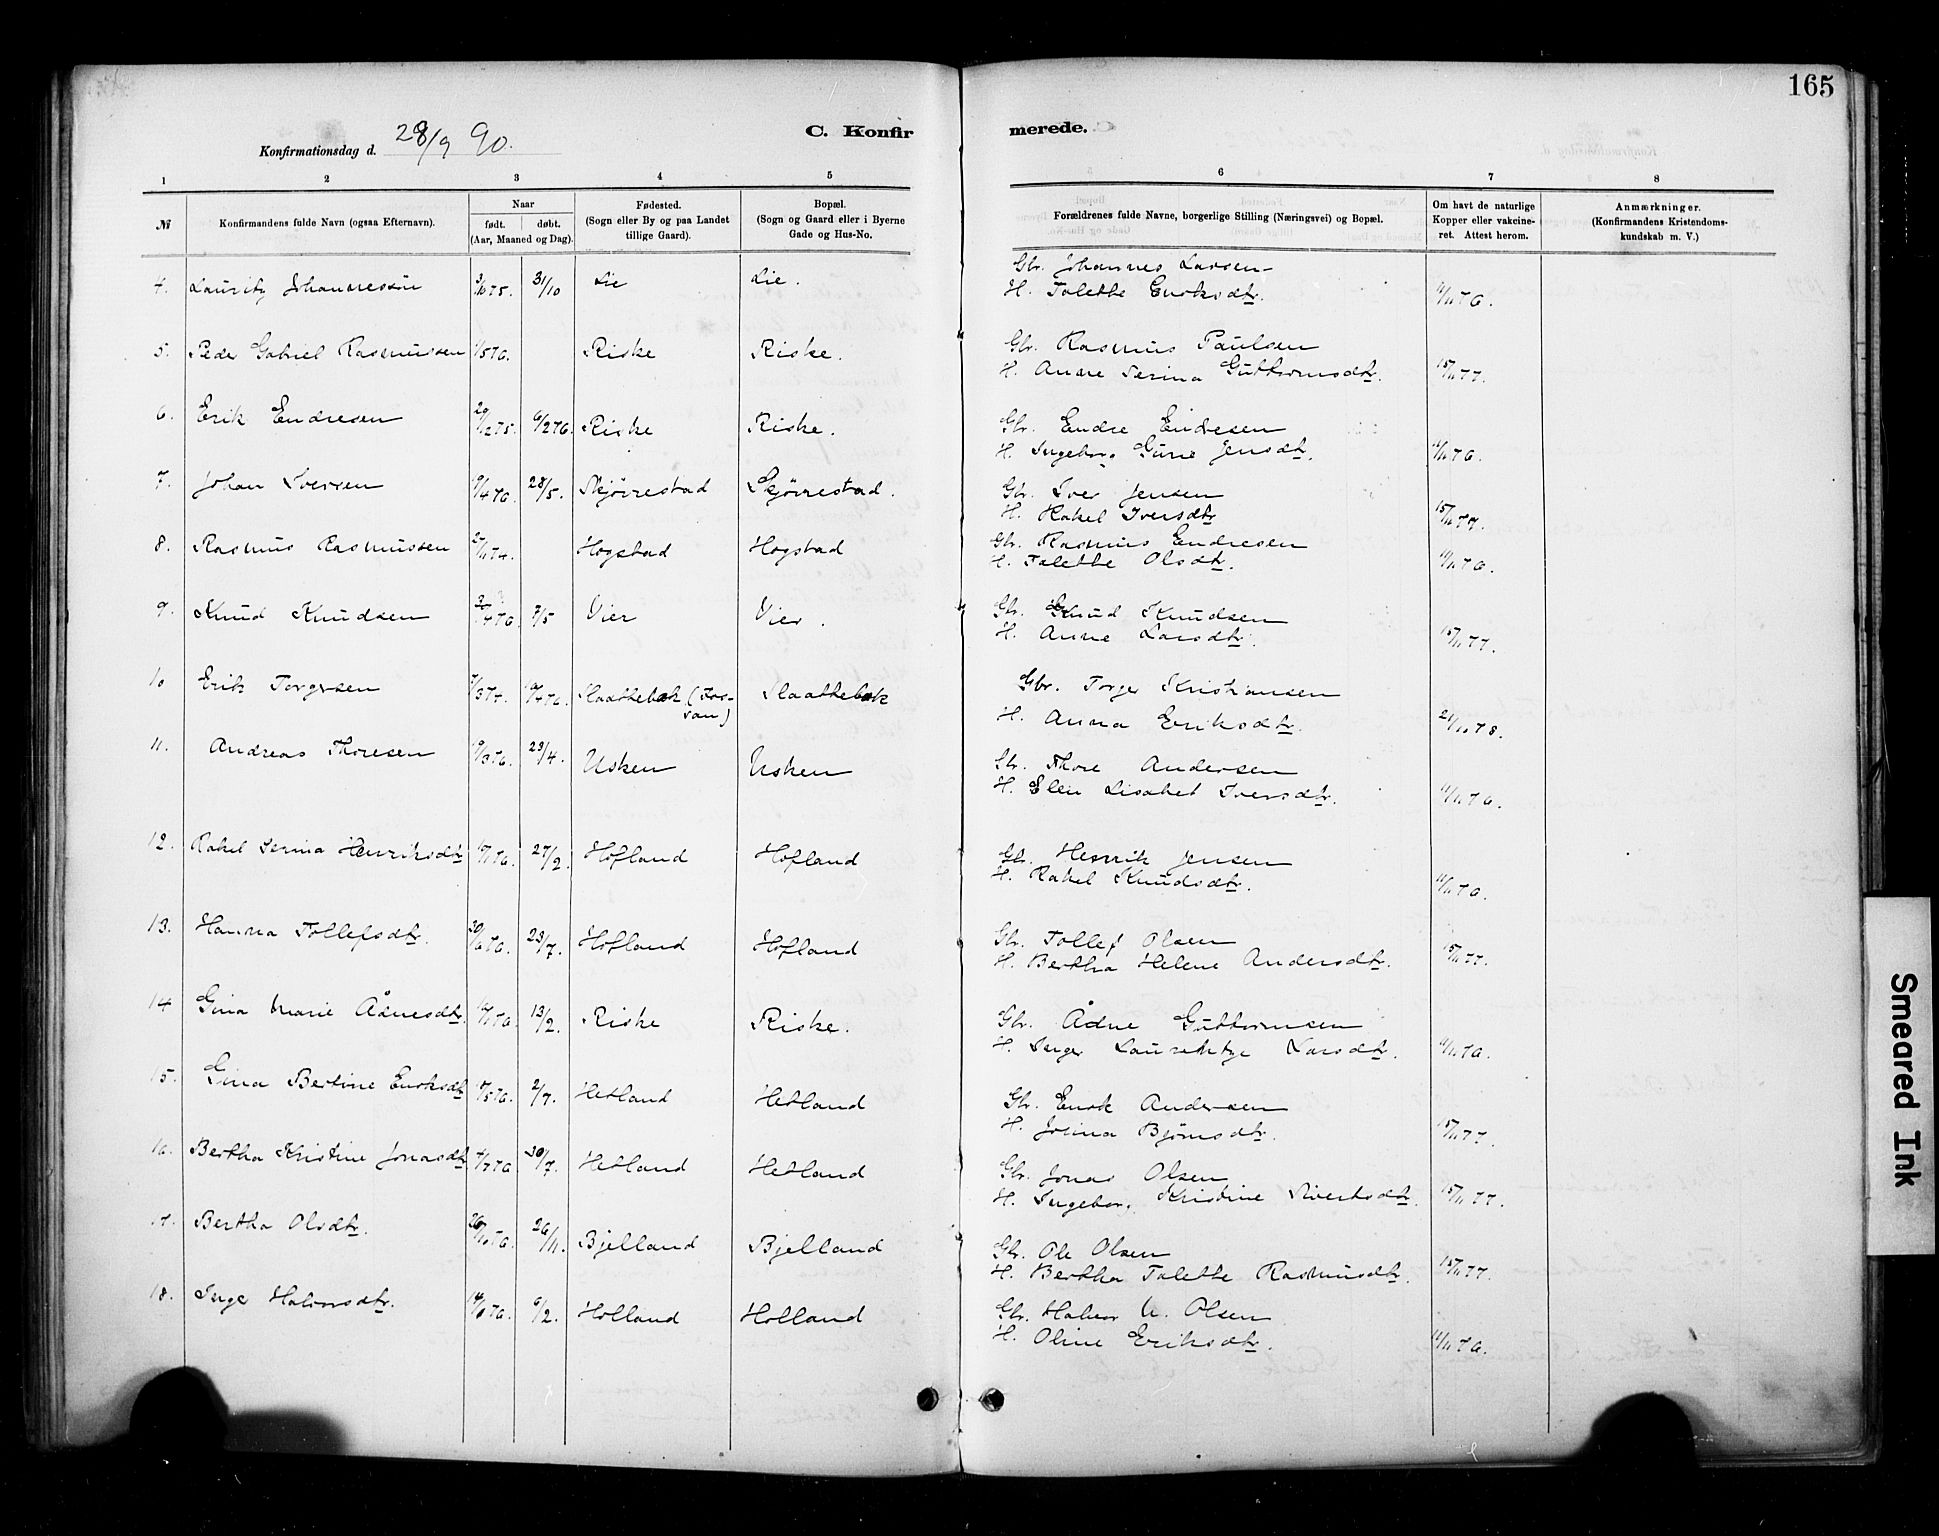 165
C. Konfirmerede.
Konfirmationsdag d. 28/9 90.
1 2 3 4 5 6 7 8
№ Konfirmandens fulde Navn (ogsaa Efternavn). Naar født. døbt. (Aar, Maaned og Dag). Fødested. (Sogn eller By og paa Landet tillige Gaard). Bopæl. (Sogn og Gaard eller i Byerne Gade og Hus-No. Forældrenes fulde Navne, borgerlige Stilling (Næringsvei) og Bopæl. Om havt de naturlige Kopper eller vakcineret. Attest herom. Anmærkninger. (Konfirmandens Kristendomskundskab m. V.)
4. Lauritz Johannessen 31/10 Lie Lie. Gbr. Johannes Larsen
H. Talette Enoksdtr.
5. Peder Gabriel Rasmussen Riske Riske. Gbr. Rasmus Paulsen
H. Anne Serina Guttormsdtr. 15/11 77.
6. Erik Endresen 6/2 76. Riske Riske. Gbr. Endre Endresen
H. Ingeborg Gurie Jensdtr.
7. Johan Iversen 9/4 76. 28/5. Skjørestad Skjørestad. Gbr. Iver Jensen
H. Rakel Iversdtr 15/11 77.
8. Rasmus Rasmussen Hogstad Hogstad Gbr. Rasmus Endresen
H. Talette Olsdtr.
9. Knud Knudsen 7/5 Vier Vier. Gbr. Knud Knudsen
H. Anne Larsdtr. 15/11 77.
10 Erik Torgersen Slaattebæk (Forsan) Slaattebæk Gbr. Torger Kristiansen
H. Anna Eriksdtr.
11. Andreas Thoresen 23/4. Usken Usken Gbr. Thore Andersen
H. Elen Lisabet Iversdtr.
12. Rakel Serina Henriksdtr 27/2. Hofland Hofland Gbr. Henrik Jensen
H. Rakel Knudsdtr.
13. Hanna Tollefsdtr. 30/6 76. 23/7. Hofland Hofland Gbr. Tollef Olsen
H. Bertha Helene Andersdtr. 15/11 77.
14 Gina Marie Ådnesdtr. 13/2. Riske Riske. Gbr. Ådne Guttormsen
H. Inger Larsdtr.
15. Gina Bertine Enoksdtr 2/7. Hetland Hetland Gbr. Enok Andersen
H. Josina Bjørnsdtr. 15/11 77.
16. Bertha Kristine Jonasdtr 30/7. Hetland Hetland Gbr. Jonas Olsen
H. Ingeborg Kristine Sivertsdtr. 15/11 77.
17. Bertha Olsdtr. 26/11. Bjelland Bjelland Gbr. Ole Olsen
H. Bertha Talette Rasmusdtr. 15/11 77.
18. Inger Halvorsdtr. 6/2. Holland Holland Gbr. Halvor Olsen
H. Oline Eriksdtr.
Smeared Ink